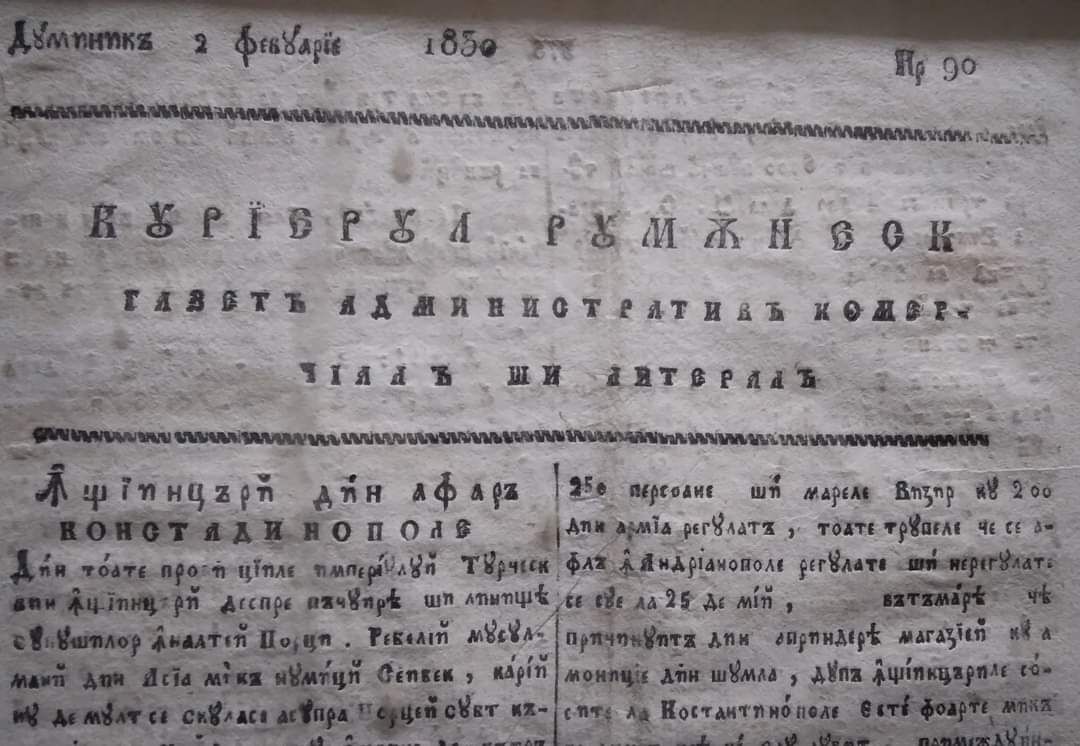 Дꙋминикъ 2 феврꙋарїе 1830
Нр 90
КꙊРЇЕРꙊЛ РꙊМѪНЕСК
ГАЗЕТЪ АДМИНИСТРАТИВЪ КОМЕР-
ЧІАЛЪ ШИ ЛИТЕРАЛЪ
Ꙟщїинцърй дйн афаръ
КОНСТАДИНОПОЛЕ
Дйн то́ате імперіꙋлꙋй Тꙋрческ
вин ꙟщїинцерй деспре пъчꙋирѣ ши линищѣ
ꙟналтей Порци. Ребелїй мꙋсꙋл-
манй дин Асїа мїкъ нꙋми́цй Сеивек, ка́рїй
нꙋ де мꙋлт се скꙋласе асꙋпра Порцей сꙋвт къ-
250 персоане шй мареле Визир кꙋ 200
дин армїа регꙋлатъ, тоате трꙋпеле че се а-
флъ ꙟ Андріанополе регꙋлате шй нерегꙋлате
се сꙋе ла 25 де мїй, вътъма́рѣ чѣ
причинꙋитъ дин априндерѣ магазїей кꙋ а
мониціе дйн шꙋмла, дꙋпъ ꙟщїинцъриле со́-
сите ла Костантино́поле Есте́ фоарте микъ